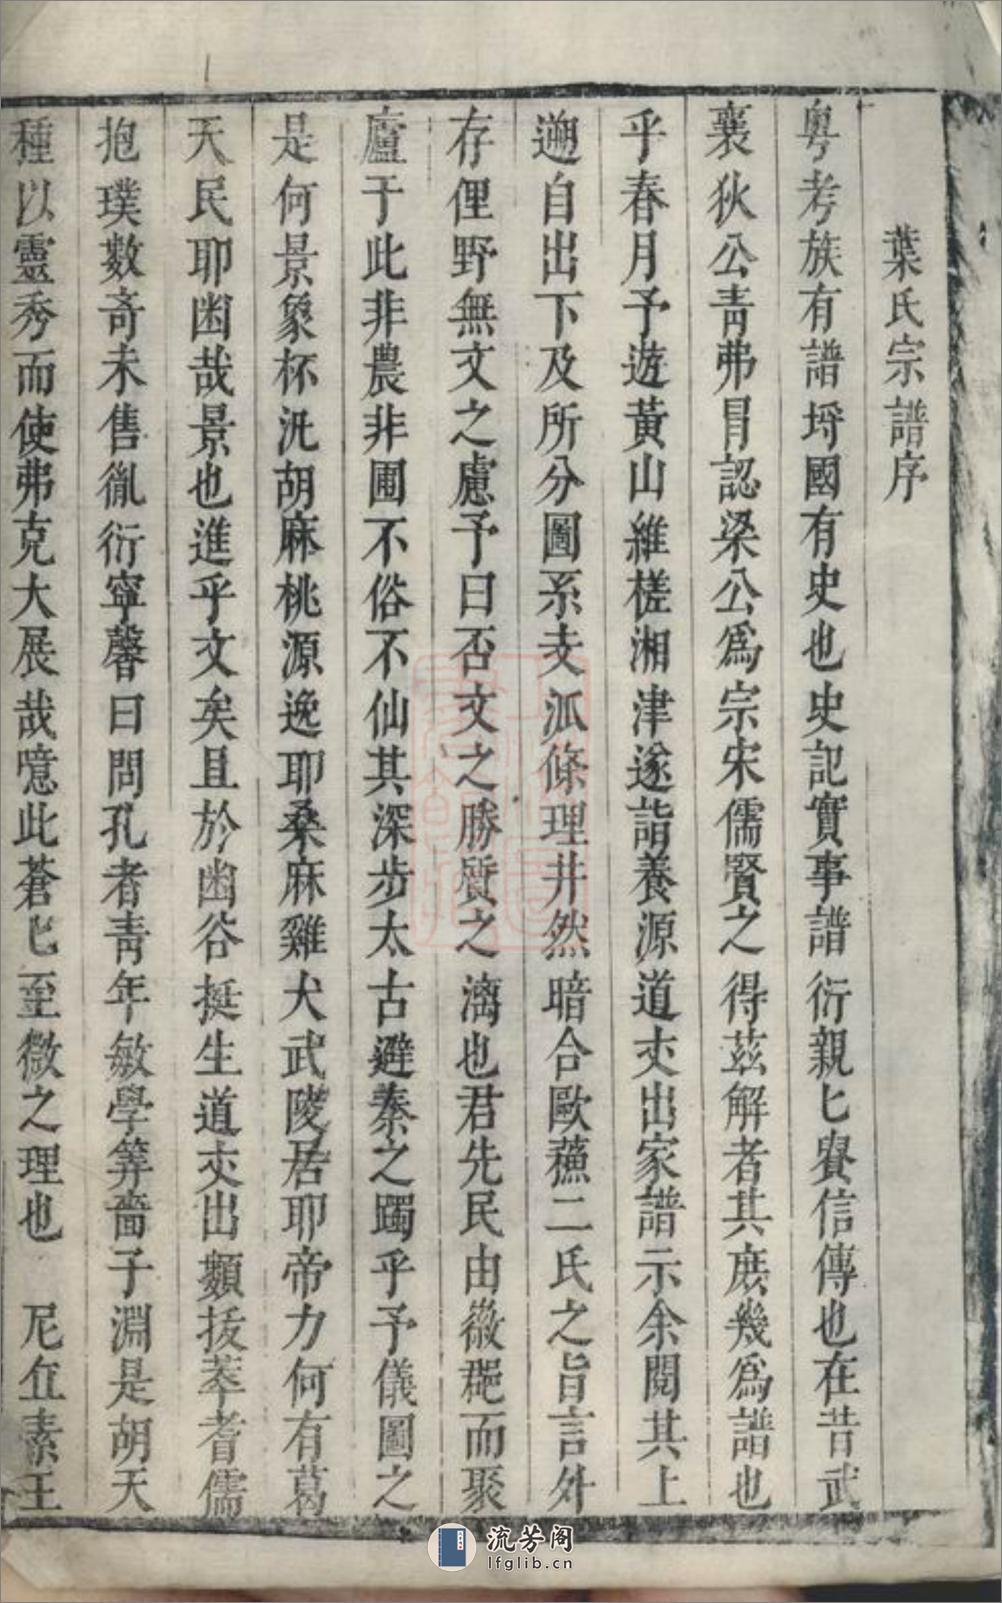 葉氏宗譜序
粤考族有譜埒國有史也史記實事譜衍親匕賚信傳也在昔武
襄狄公青弗冒認梁公為宗宋儒賢之得茲解者其庶幾為譜也
乎春月予遊黃山維槎湘津遂詣養源道夾出家譜示余閱其上
遡自出下及所分圖系支派條理井然暗合歐蘓二氏之旨言外
存俚野無文之慮予曰否文之勝質之漓也君先民由徽郡而聚
廬于此非農非圃不俗不仙其深步太古避秦之躅乎予儀圖之
是何景象杯汎胡麻桃源逸耶桑麻雞犬武陵居耶帝力何有葛
天民耶幽哉景也進乎文矣且於幽谷挺生道夾出類拔萃者儒
抱璞數奇未售胤衍寧馨曰問孔者青年敏學筭啬子淵是胡天
種以靈秀而使弗克大展哉噫此蒼匕至微之理也 尼丘素王
流芳阁
lfglib.cn